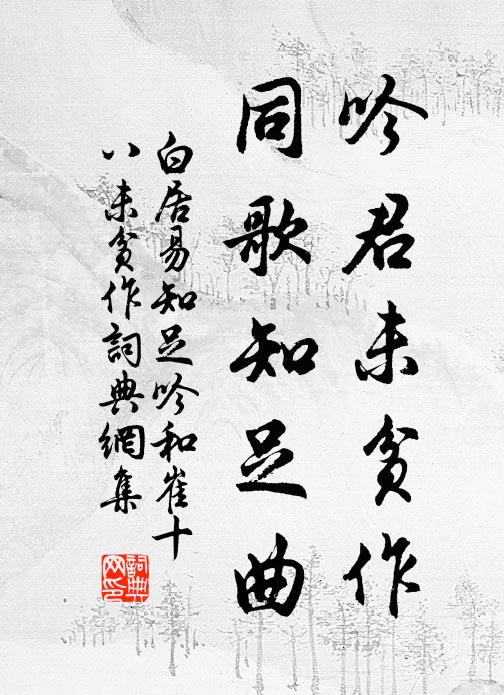 吟君未贫作
同歌知足曲
白居易知足吟和崔十
八未贫作詞典網集
詞典网印